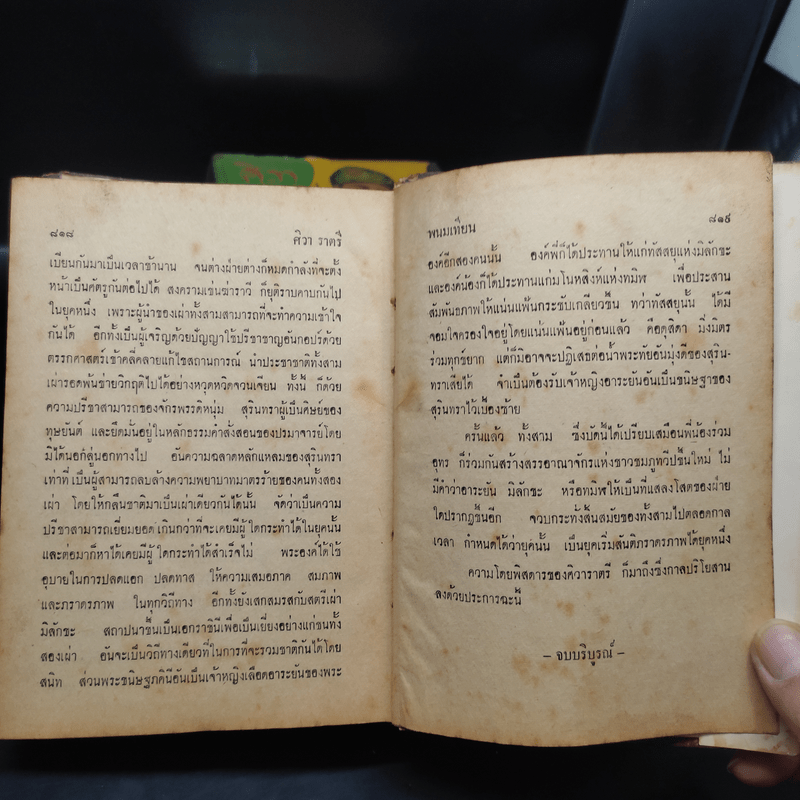 ๘๑๘
ศิวา ราตรี
เบียนกันมาเป็นเวลาช้านาน จนต่างฝ่ายต่างก็หมดกำลังที่จะตั้ง
หน้าเป็นศัตรูกันต่อไปได้ สงครามเช่นฆ่าราวี ก็ยุติราบคาบกันไป
ในยุคหนึ่ง เพราะผู้นำของเผ่าทั้งสามสามารถที่จะทำความเข้าใจ
กันได้ อีกทั้งเป็นผู้เจริญด้วยปัญญาใช้ปรีชาชาญอันกอปร์ด้วย
ตรรกศาสตร์เข้าคลี่คลายแก้ไขสถานการณ์ นำประชาชาติทั้งสาม
เผ่ารอดพ้นข่ายวิกฤติไปได้อย่างหวุดหวิดจวนเจียน ทั้งนี้ ก็ด้วย
ความปรีชาสามารถของจักรพรรดิหนุ่ม สุรินทราผู้เป็นศิษย์ของ
ทุษยันต์ และยึดมั่นอยู่ในหลักธรรมคำสั่งสอนของปรมาจารย์โดย
มิได้นอกลู่นอกทางไป อันความฉลาดหลักแหลมของสุรินทรา
เท่าที่เป็นผู้สามารถลบล้างความพยาบาทมาดร้ายของคนทั้งสอง
เผ่า โดยให้กลืนชาติมาเป็นเผ่าเดียวกันได้นั้น จัดว่าเป็นความ
ปรีชาสามารถเยี่ยมยอดเกินกว่าที่จะเคยมีผู้ใดกระทำได้ในยุคนั้น
และต่อมาก็หาได้เคยมีผู้ใดกระทำได้สำเร็จไม่ พระองค์ได้ใช้
อุบายในการปลดแอก ปลดทาส ให้ความเสมอภาค สมภาพ
และภราดรภาพ ในทุกวิถีทาง อีกทั้งยังเสกสมรสกับสตรีเผ่า
มิลักขะ สถาปนาขึ้นเป็นเอกราชินีเพื่อเป็นเยี่ยงอย่างแก่ชนทั้ง
สองเผ่า อันจะเป็นวิถีทางเดียวที่ในการที่จะรวมชาติกันได้โดย
สนิท ส่วนพระขนิษฐภคินีอันเป็นเจ้าหญิงเลือดอาระยันของพระ
พนมเทียน
๘๑๙
องค์อีกสองคนนั้น องค์พี่ก็ได้ประทานให้แก่ทัสสยุแห่งมิลักขะ
และองค์น้องก็ได้ประทานแก่มโนหสิงห์แห่งทมิฬ เพื่อประสาน
สัมพันธภาพให้แน่นแฟ้นกระชับเกลียวขึ้น ทว่าทัสสยุนั้น ได้มี
จอมใจครองใจอยู่โดยแน่นแฟ้นอยู่ก่อนแล้ว คือดุสิตา มิ่งมิตร
ร่วมทุกข์ยาก แต่ก็มิอาจจะปฏิเสธต่อน้ำพระทัยอันมุ่งดีของสุริน-
ทราเสียได้ จำเป็นต้องรับเจ้าหญิงอาระยันอันเป็นขนิษฐาของ
สุรินทราไว้เบื้องซ้าย
ครั้นแล้ว ทั้งสาม ซึ่งบัดนี้ได้เปรียบเสมือนพี่น้องร่วม
อุทร ก็ร่วมกันสร้างสรรอาณาจักรแห่งชาวชมภูทวีปขึ้นใหม่ ไม่
มีคำว่าอาระยัน มิลักขะ หรือทมิฬให้เป็นที่แสลงโสตของฝ่าย
ใดปรากฏขึ้นอีก จวบกระทั่งสิ้นสมัยของทั้งสามไปตลอดกาล
เวลา กำหนดได้ว่ายุคนั้น เป็นยุคเริ่มสันติภราดรภาพได้ยุคหนึ่ง
ความโดยพิสดารของศิวาราตรี ก็มาถึงซึ่งกาลปริโยสาน
ลงด้วยประการฉะนี้
– จบบริบูรณ์ –